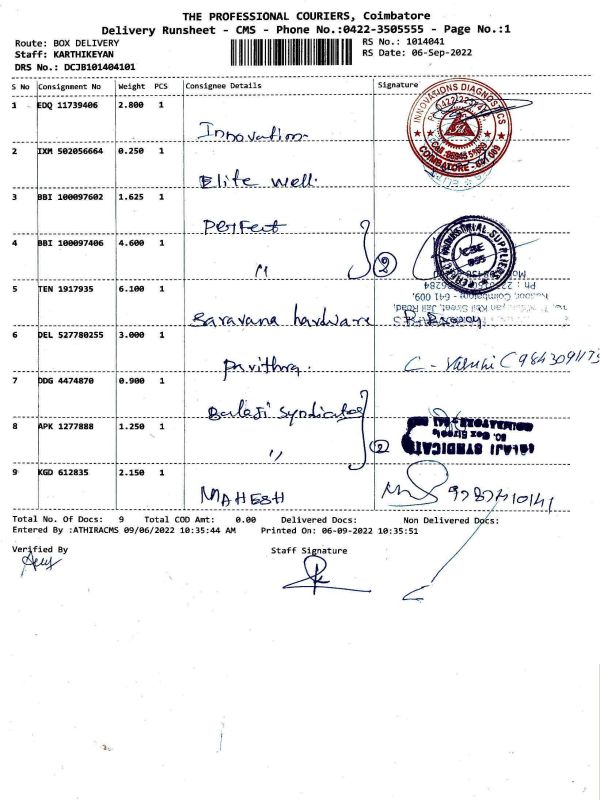 THE PROFESSIONAL COURIERS, Coimbatore
Delivery Runsheet - CMS - Phone No.:0422-3505555 - Page No.:1
Route: BOX DELIVERY
Staff: KARTHIKEYAN
DRS No.: DCJB101404101
RS No.: 1014041
RS Date: 06-Sep-2022
S No Consignment No Weight PCS Consignee Details Signature
1 EDQ 11739406 2.800 1
Innovation
INNOVATIONS DIAGNOSTICS
COIMBATORE - 641 009
2 IXM 502056664 0.250 1
Elite well.
3 BBI 100097602 1.625 1
Perfect
INDUSTRIAL SUPPLIERS
CBE
4 BBI 100097406 4.600 1
"
2
5 TEN 1917935 6.100 1
Saravana hardware
6 DEL 527780255 3.000 1
Pavithra.
7 DDG 4474870 0.900 1
Balaji Syndicates
8 APK 1277888 1.250 1
"
2
BALAJI SYNDICATE
9 KGD 612835 2.150 1
MAHESH
Total No. Of Docs: 9 Total COD Amt: 0.00 Delivered Docs: Non Delivered Docs:
Entered By :ATHIRACMS 09/06/2022 10:35:44 AM Printed On: 06-09-2022 10:35:51
Verified By
Staff Signature